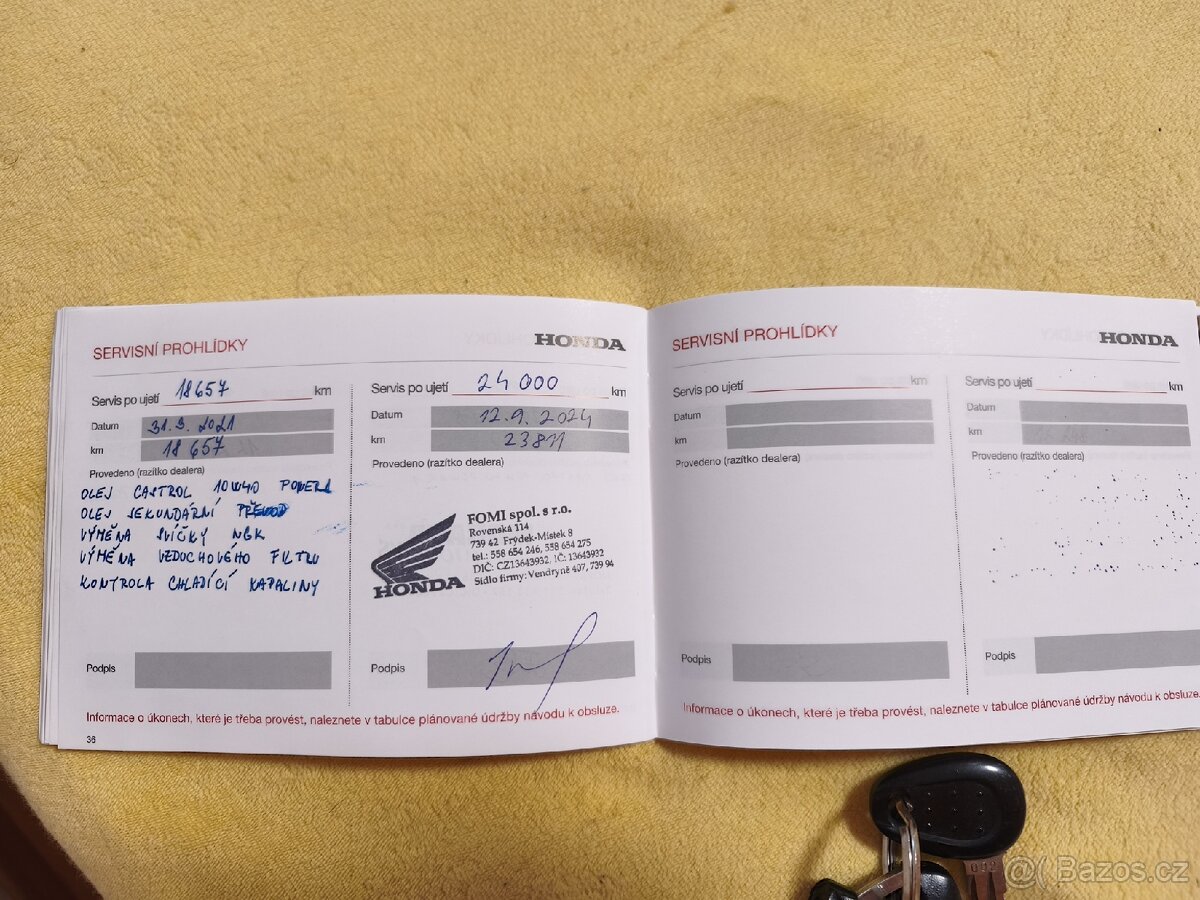 SERVISNÍ PROHLÍDKY
HONDA
Servis po ujetí 18657 km
Datum 31.3.2021
km 18657
Provedeno (razítko dealera)
OLEJ CASTROL 10W40 POWER1
OLEJ SEKUNDÁRNÍ PŘEVOD
VÝMĚNA SVÍČKY NGK
VÝMĚNA VZDUCHOVÉHO FILTRU
KONTROLA CHLADÍCÍ KAPALINY
Podpis
Servis po ujetí 24 000 km
Datum 12.9.2024
km 23811
Provedeno (razítko dealera)
FOMI spol. s r.o.
Rovenská 114
739 42 Frýdek-Místek 8
tel.: 558 654 246, 558 654 275
DIČ: CZ13643932, IČ: 13643932
Sídlo firmy: Vendryně 407, 739 94
HONDA
Podpis
Informace o úkonech, které je třeba provést, naleznete v tabulce plánované údržby návodu k obsluze.
36
SERVISNÍ PROHLÍDKY
HONDA
Servis po ujetí km
Datum
km
Provedeno (razítko dealera)
Podpis
Servis po ujetí km
Datum
km
Provedeno (razítko dealera)
Podpis
Informace o úkonech, které je třeba provést, naleznete v tabulce plánované údržby návodu k obsluze.
Bazos.cz